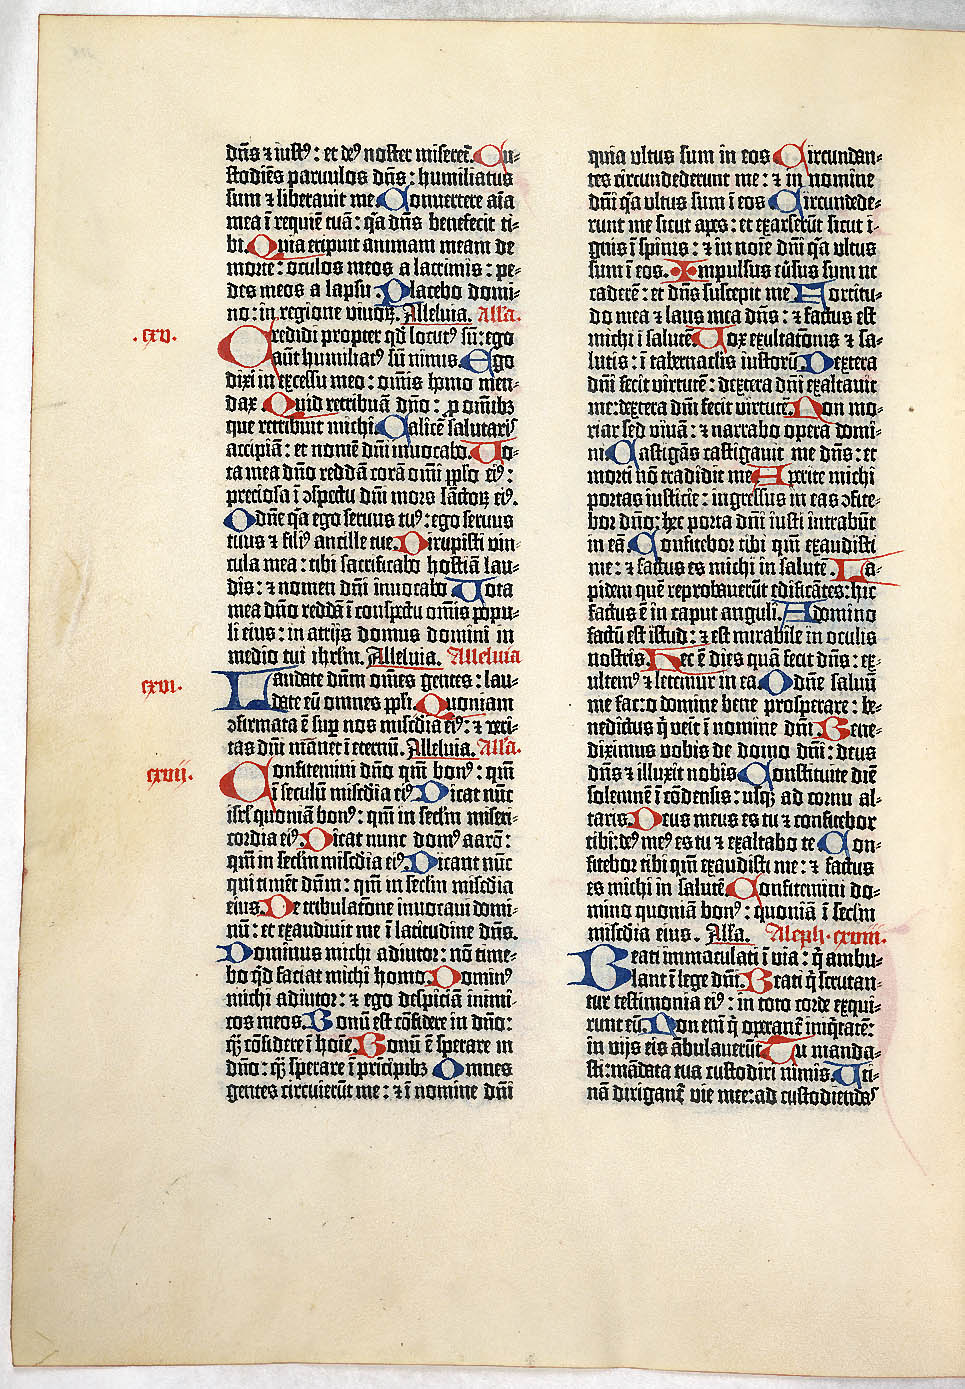 dn̄s ⁊ iustꝰ : et deꝰ noster miseret̄. Cu-
stodiēs paruulos dn̄s : humiliatus
sum ⁊ liberauit me Conuertere aīa
mea ī requiē tuā : qa dn̄s benefecit ti-
bi. Quia eripuit animam meam de
morte : oculos meos a lacrimis : pe-
des meos a lapsu Placebo domi-
no : in regione viuoꝝ. Alleluia. All'a.
.cxv.
Credidi propter qd̄ locutꝰ sū : ego
aūt humiliatꝰ sū nimis. Ego
dixi in excessu meo : om̄is homo men-
dax Quid retribuā dn̄o : ꝓ om̄ibꝫ
que retribuit michi Calicē salutaris
accipiā : et nomē dn̄i inuocabo. Uo-
ta mea dn̄o reddā corā om̄i ppl̄o eiꝰ :
preciosa ī ↄspectu dn̄i mors sāctoꝝ eiꝰ.
O dn̄e qa ego seruus tuꝰ : ego seruus
tuus ⁊ filiꝰ ancille tue. Dirupisti vin-
cula mea : tibi sacrificabo hostiā lau-
dis : ⁊ nomen dn̄i inuocabo Uota
mea dn̄o reddā ī conspectu om̄is popu-
li eius : in atrijs domus domini in
medio tui ihrl̄m. Alleluia. Alleluia
cxvi.
Laudate dn̄m om̄es gentes : lau-
date eū omnes pp̄li. Quoniam
ↄfirmata ē suꝑ nos mis̄cdia eiꝰ : ⁊ veri-
tas dn̄i manet ī eternū. Alleluia. All'a.
cxvij.
Confitemini dn̄o qm̄ bonꝰ : qm̄
ī seculū mis̄cdia eiꝰ Dicat nūc
isrl̄ quoniā bonꝰ : qm̄ in secl̄m miseri-
cordia eiꝰ. Dicat nunc domꝰ aarō :
qm̄ in secl̄m mis̄cdia eiꝰ. Dicant nūc
qui timēt dn̄m : qm̄ in secl̄m mis̄cdia
eius. De tribulatōne inuocaui domi-
nū : et exaudiuit me ī latitudine dn̄s.
Dominus michi adiutor : nō time-
bo qd̄ faciat michi homo. Dominꝰ
michi adiutor : ⁊ ego despiciā inimi-
cos meos. Bonū est cōfidere in dn̄o :
qꝫ cōfidere ī hoīe. Bonū ē sperare in
dn̄o : qꝫ sperare ī prīcipibꝫ Omnes
gentes circuierūt me : ⁊ ī nomine dn̄i
quia vltus sum in eos Circundan-
tes circundederunt me : ⁊ in nomine
dn̄i qa vltus sum ī eos Circundede-
runt me sicut apes : et exarserūt sicut i-
gnis ī spinis : ⁊ in noīe dn̄i qa vltus
sum ī eos. Impulsus eūsus sum ut
caderē : et dn̄s suscepit me Fortitu-
do mea ⁊ laus mea dn̄s : ⁊ factus est
michi ī salutē. Uox exultatōnis ⁊ sa-
lutis : ī tabernaclis iustorū. Dextera
dn̄i fecit virtutē : dextera dn̄i exaltauit
me : dextera dn̄i fecit virtutē. Non mo-
riar sed viuā : ⁊ narrabo opera domi-
ni Castigās castigauit me dn̄s : et
morti nō tradidit me Aperite michi
portas iusticie : ingressus in eas ↄfite-
bor dn̄o : hec porta dn̄i iusti intrabūt
in eā. Confitebor tibi qm̄ exaudisti
me : ⁊ factus es michi in salutē. La-
pidem quē reprobauerūt edificātes : hic
factus ē in caput anguli. A domino
factū est istud : ⁊ est mirabile in oculis
nostris. Hec ē dies quā fecit dn̄s : ex-
ultemꝰ ⁊ letemur in ea. O dn̄e saluū
me fac : o domine bene prosperare : be-
nedictus q̇ veīt ī nomine dn̄i Bene-
diximus vobis de domo dn̄i : deus
dn̄s ⁊ illuxit nobis Constituite diē
solennē ī cōdensis : usqꝫ ad cornu al-
taris. Deus meus es tu ⁊ confitebor
tibi : deꝰ meꝰ es tu ⁊ exaltabo te Con-
fitebor tibi qm̄ exaudisti me : ⁊ factus
es michi in salutē Confitemini do-
mino quoniā bonꝰ : quoniā ī secl̄m
mis̄cdia eius. All'a. Aleph. cxviii.
Beati immaculati ī via : q̇ ambu-
lant ī lege dn̄i. Beati q̇ scrutan-
tur testimonia eiꝰ : in toto corde exqui-
runt eū. Non em̄ q̇ operant̄ iniq̇tatē :
in vijs eis ābulauerūt Tu manda-
sti : mādata tua custodiri nimis. Uti-
nā dirigant̄ vie mee : ad custodiendas